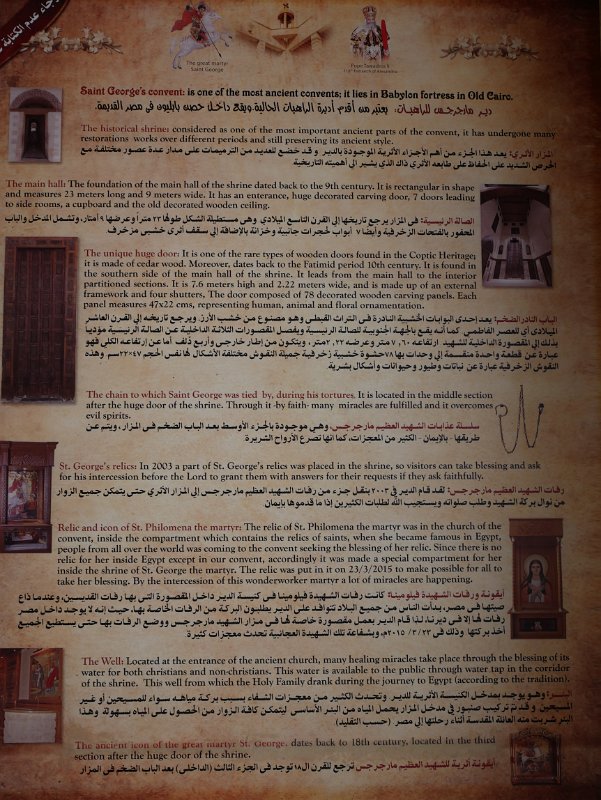 رجاء عدم الكتابة
The great martyr
Saint George
Pope Tawadros II
118th Patriarch of Alexandria
Saint George's convent: is one of the most ancient convents; it lies in Babylon fortress in Old Cairo.
دير مارجرجس للراهبات: يعتبر من أقدم أديرة الراهبات الحالية.ويقع داخل حصن بابليون فى مصر القديمة.
The historical shrine: considered as one of the most important parts of the convent, it has undergone many
restorations works over different periods and still preserving its ancient style.
المزار الأثري: يعد هذا الجزء من أهم الأجزاء الأثرية الموجودة بالدير. وقد خضع للعديد من الترميمات على مدار عدة عصور مختلفة مع
الحرص الشديد على الحفاظ على طابعه الأثري ذاك الذي يشير الي أهميته التاريخية
The main hall: The foundation of the main hall of the shrine dated back to the 9th century. It is rectangular in shape
and measures 23 meters long and 9 meters wide. It has an enterance, huge decorated carving door, 7 doors leading
to side rooms, a cupboard and the old decorated wooden ceiling.
الصالة الرئيسية: فى المزار يرجع تاريخها إلى القرن التاسع الميلادي وهى مستطيلة الشكل طولها ٢٣ متراً وعرضها ٩ أمتار، وتشمل المدخل والباب
المحفور بالفتحات الزخرفية وأيضا ٧ أبواب لحجرات جانبية وخزانة بالإضافة إلى سقف أثري خشبى مزخرف
The unique huge door: It is one of the rare types of wooden doors found in the Coptic Heritage;
it is made of cedar wood. Moreover, dates back to the Fatimid period 10th century. It is found in
the southern side of the main hall of the shrine. It leads from the main hall to the interior
partitioned sections. It is 7.6 meters high and 2.22 meters wide, and is made up of an external
framework and four shutters. The door composed of 78 decorated wooden carving panels. Each
panel measures 47x22 cms, representing human, animal and floral ornamentation.
الباب النادر الضخم: يعد إحدى البوابات الخشبية النادرة فى التراث القبطى وهو مصنوع من خشب الأرز. ويرجع تاريخه إلى القرن العاشر
الميلادى أي العصر الفاطمى. كما أنه يقع بالجهة الجنوبية للصالة الرئيسية ويفصل المقصورات الثلاثة الداخلية عن الصالة الرئيسية مؤديا
بذلك إلى المقصورة الداخلية للشهيد. ارتفاعه ٧,٦٠ متر وعرضه ٢,٢٢ متر، ويتكون من إطار خارجى وأربع دلف أما عن إرتفاعه الكلى فهو
عبارة عن قطعة واحدة منقسمة إلى وحدات بها ٧٨ حشوة خشبية زخرفية جميلة النقوش مختلفة الأشكال لها نفس الحجم ٤٧×٢٢سم وهذه
النقوش الزخرفية عبارة عن نباتات وطيور وحيوانات وأشكال بشرية.
The chain to which Saint George was tied by, during his tortures. It is located in the middle section
after the huge door of the shrine. Through it -by faith- many miracles are fulfilled and it overcomes
evil spirits.
سلسلة عذابات الشهيد العظيم مارجرجس: وهى موجودة بالجزء الأوسط بعد الباب الضخم فى المزار، ويتم عن
طريقها - بالإيمان - الكثير من المعجزات، كما أنها تصرع الأرواح الشريرة.
St. George's relics: In 2003 a part of St. George's relics was placed in the shrine, so visitors can take blessing and ask
for his intercession before the Lord to grant them with answers for their requests if they ask faithfully.
رفات الشهيد العظيم مارجرجس: لقد قام الدير فى ٢٠٠٣ بنقل جزء من رفات الشهيد العظيم مارجرجس إلى المزار الأثري حتى يتمكن جميع الزوار
من نوال بركة الشهيد وطلب صلواته ويستجيب الله لطلبات الكثيرين إذا ما قدموها بإيمان
Relic and icon of St. Philomena the martyr: The relic of St. Philomena the martyr was in the church of the
convent, inside the compartment which contains the relics of saints, when she became famous in Egypt,
people from all over the world was coming to the convent seeking the blessing of her relic. Since there is no
relic for her inside Egypt except in our convent, accordingly it was made a special compartment for her
inside the shrine of St. George the martyr. The relic was put in it on 23/3/2015 to make possible for all to
take her blessing. By the intercession of this wonderworker martyr a lot of miracles are happening.
أيقونة ورفات الشهيدة فيلومينا: كانت رفات الشهيدة فيلومينا فى كنيسة الدير داخل المقصورة التى بها رفات القديسين، وعندما ذاع
صيتها فى مصر، بدأت الناس من جميع البلاد تتوافد على الدير يطلبون البركة من الرفات الخاصة بها، حيث إنه لا يوجد داخل مصر
رفات لها إلا فى ديرنا، لذا قام الدير بعمل مقصورة خاصة لها فى مزار الشهيد مارجرجس ووضع الرفات بها حتى يستطيع الجميع
أخذ بركتها وذلك فى ٢٣ / ٣ / ٢٠١٥م، وبشفاعة تلك الشهيدة العجايبية تحدث معجزات كثيرة.
The Well: Located at the entrance of the ancient church, many healing miracles take place through the blessing of its
water for both christians and non-christians. This water is available to the public through water tap in the corridor
of the shrine. This well from which the Holy Family drank during the journey to Egypt (according to the tradition).
البئر: وهو يوجد بمدخل الكنيسة الأثرية للدير. وتحدث الكثير من معجزات الشفاء بسبب بركة مياهه سواء للمسيحين أو غير
المسيحين. وقد تم تركيب صنبور فى مدخل المزار يحمل المياه من البئر الأساسى ليتمكن كافة الزوار من الحصول على المياه بسهولة. وهذا
البئر شربت منه العائلة المقدسة أثناء رحلتها إلى مصر (حسب التقليد)
The ancient icon of the great martyr St. George, dates back to 18th century, located in the third
section after the huge door of the shrine.
أيقونة أثرية للشهيد العظيم مارجرجس ترجع للقرن ال١٨ توجد فى الجزء الثالث (الداخلى) بعد الباب الضخم فى المزار